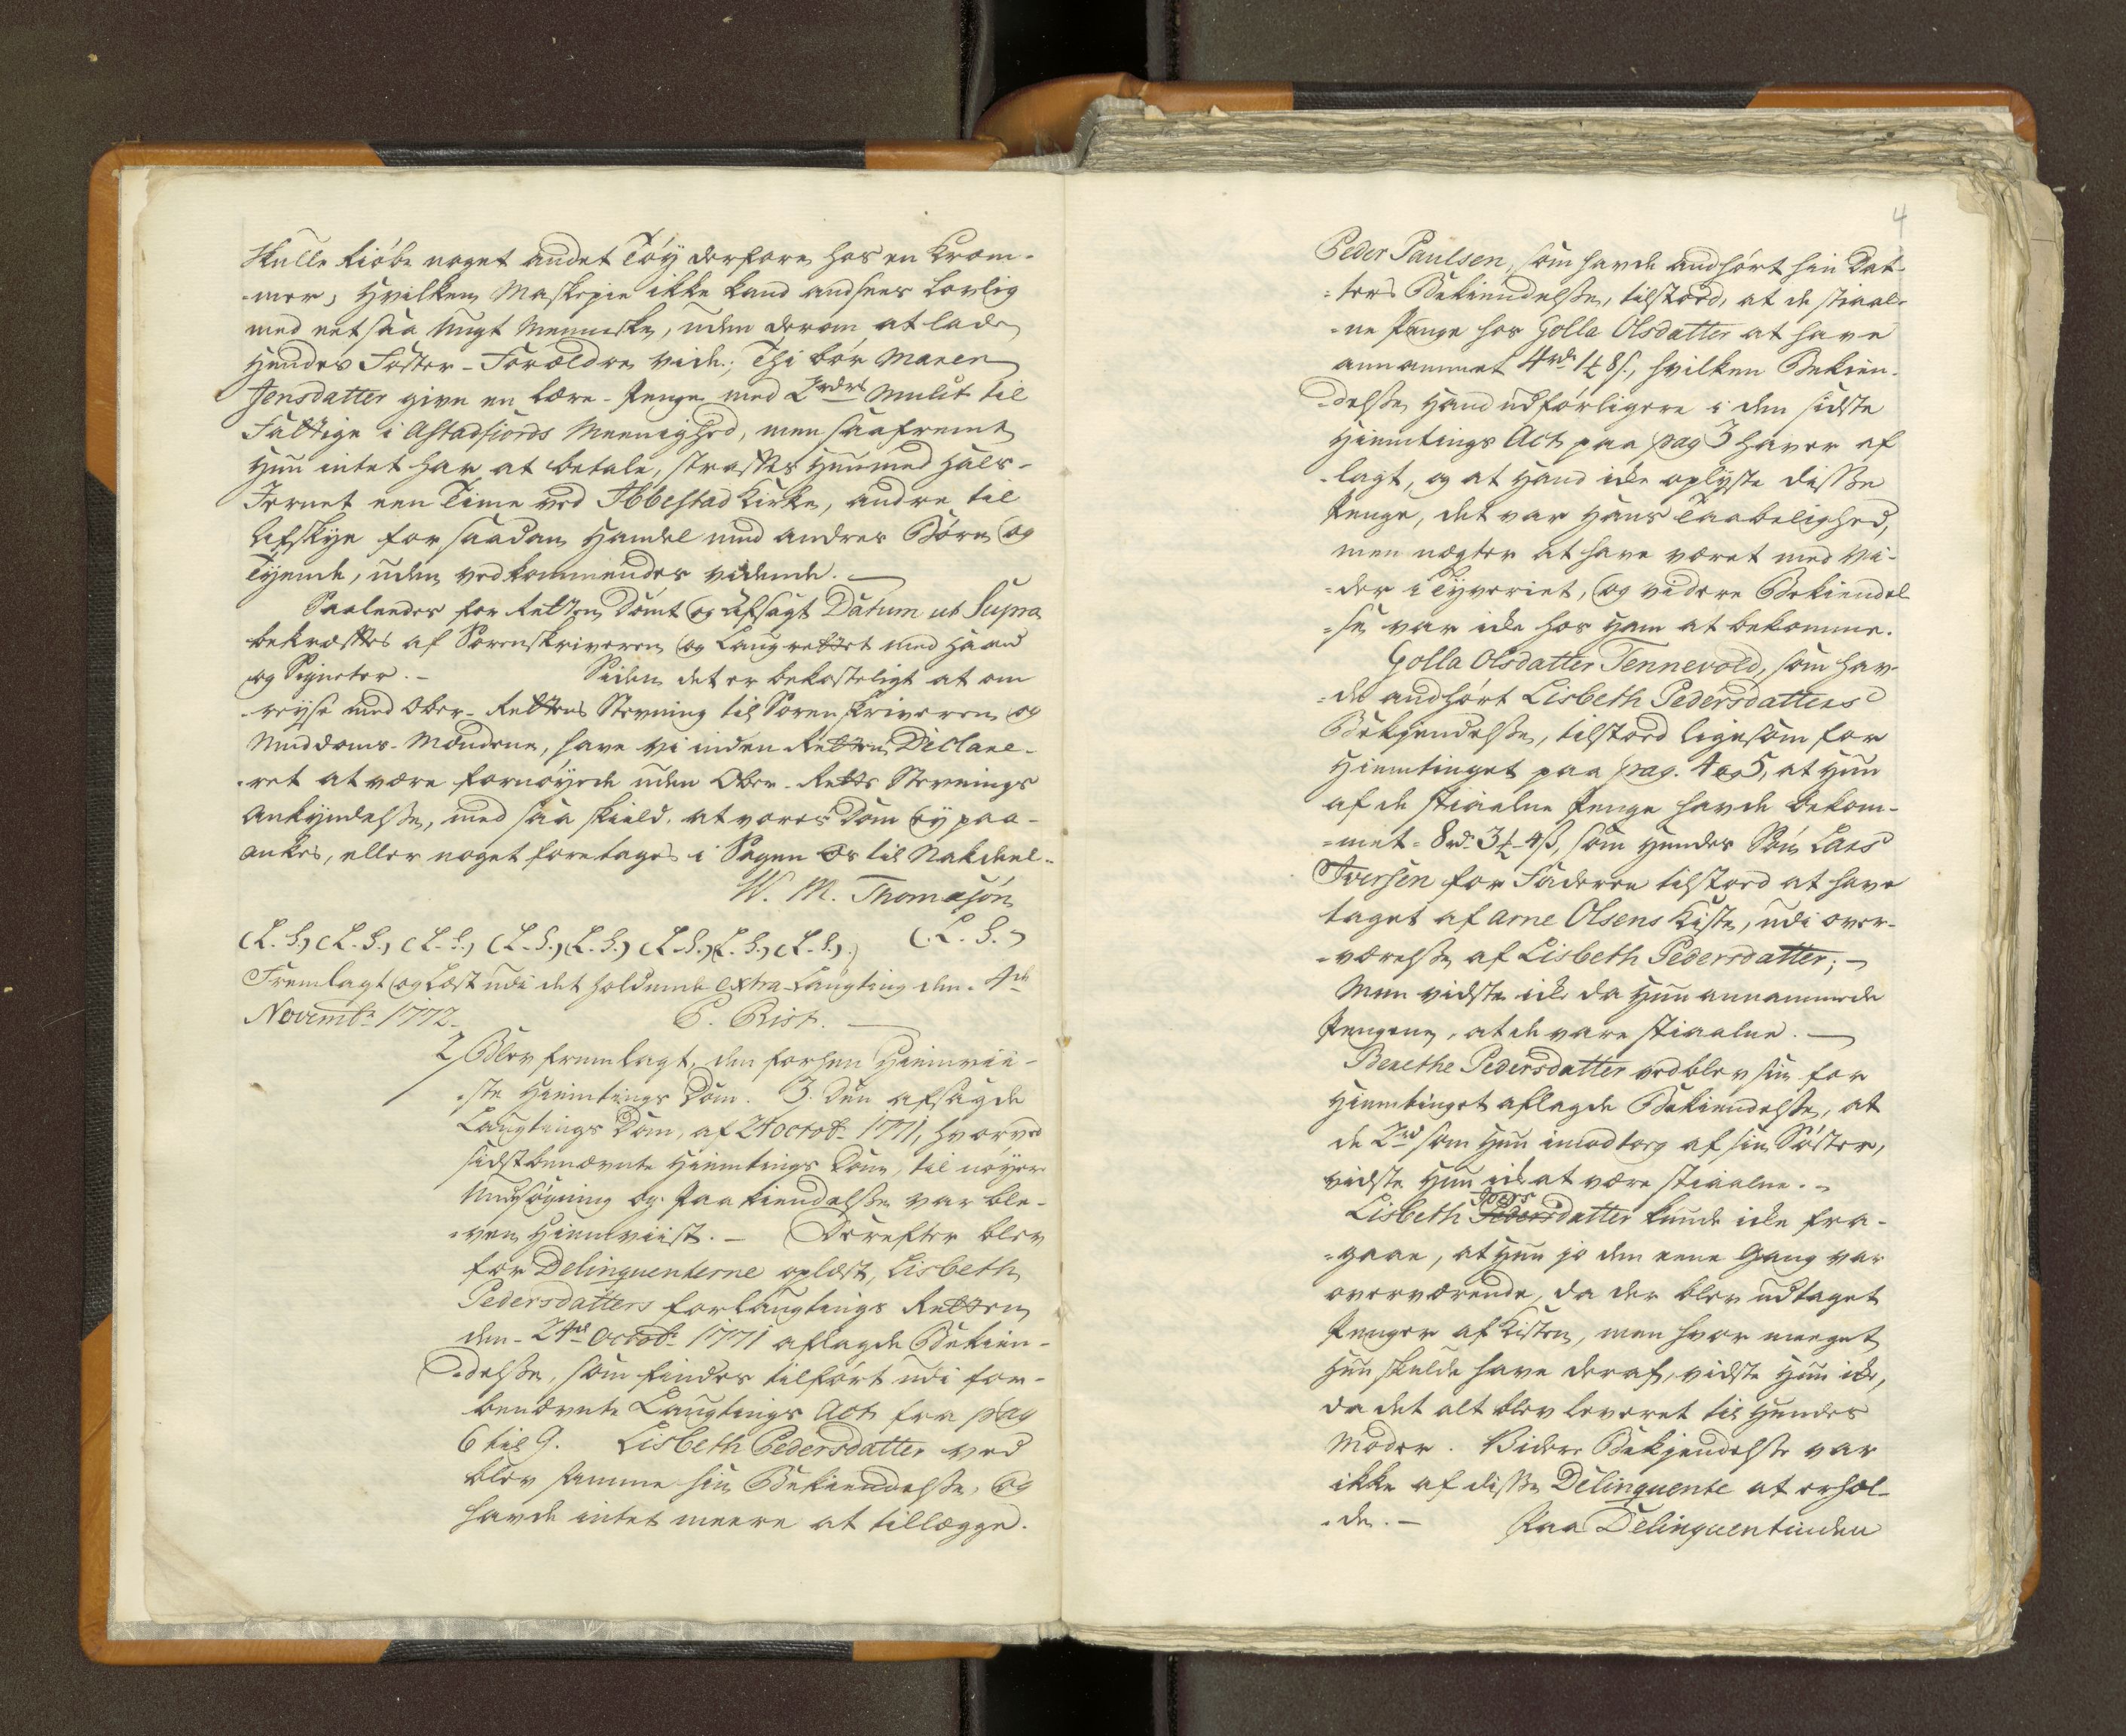 skulle kiøbe noget andet Tøy derfore hos en Krom-
-mer, hvilken Maskepie ikke kand ansees lovlig
med eet saa ungt Menniske, uden derom at lade
hendes Foster-Forældre vide; Thi bør Maren
Jensdatter give en lære-Penge med 2 rdrs Mulct til
Fattige i Astadfiords Meenighed, men saafremt
hun intet har at betale, straffes hun med Hals-
Jernet een Time ved Ibbestad Kirke, andre til
Afskye for saadan Handel med andres Børn og
Tyende, uden vedkommendes vidende. —
Saaledes for Retten Dømt og Afsagt Datum ut Supra
bekræftes af Sorenskriveren og Laugrettet med Haand
og Signeter. - Siden det er bekosteligt at om
-reyse med Ober-Rettens Stevning til Sorenskriveren og
Meddoms-Mændene, have vi inden Retten Declare-
-ret at være fornøyede uden Ober-Retts Stevnings
Ankyndelse, med saa skield. at vores Dom ey paa-
ankes, eller noget foretages i Sagen os til Nakdeel.
W. M. Thomasøn
(L. S.) (L. S.) (L. S.) (L. S.) (L. S.) (L. S.) (L. S.) (L. S.) (L. S.)
Fremlagt og Læst udi det holdende extra Laugting den 4de
Novembr 1772. E. Rist. —
2 Blev fremlagt, den forhen Hiemvii-
-ste Hiemtings Dom. 3. Den afsagde
Laugtings Dom, af 24 octob. 1771, hvorved
sidstbenævnte Hiemtings Dom, til nøyere
Undersøgning og Paakiendelse var ble-
-ven Hiemviist. - Derefter blev
for Delinquenterne oplæst, Lisbeth
Pedersdatters for Laugtings Retten
den 24de Octobr 1771 aflagde Bekien-
-delse, som findes tilført udi for-
benævnte Laugtings Act fra pag
6 til 9. Lisbeth Pedersdatter ved
blev samme sin Bekiendelse, og
havde intet meere at tillægge.
4
Peder Paulsen, som havde andhørt sin Dat-
-ters Bekiendelse, tilstoed, at de stiaal-
-ne Penge hos Golla Olsdatter at have
annammet 4 rdr 1 ½ 8 s., hvilken Bekien-
-delse hand udførligere i den sidste
Hiemtings Act paa pag 3 haver af
-lagt, og at hand icke oplyste disse
Penge, det var hans Taabelighed,
men nægter at have været med vi-
-der i Tyveriet, og videre Bekiendel
-se var icke hos ham at bekomme.
Golla Olsdatter Tennevold, som hav-
-de andhørt Lisbeth Pedersdatters
Bekjendelse, tilstoed ligesom for
Hiemtinget paa pag. 4 og 5, at hun
af de stiaalne Penge havde bekom-
-met 8 rd. 3 ½ 4 ß, som hendes Søn Lars
Iversen for Faderen tilstoed at have
taget af Arne Olsens Kiste, udi over-
-værelse af Lisbeth Pedersdatter; -
Men vidste icke da hun annammede
Pengene, at de vare stiaalne. —
Berethe Pedersdatter vedblev sin for
Hiemtinget aflagde Bekiendelse, at
de 2 rd som hun imodtog af sin Søster,
vidste hun icke at være stiaalne. -
Ivers
Lisbeth Pedersdatter kunde icke fra-
-gaae, at hun jo den eene Gang var
overværende, da der blev udtaget
Penger af Kisten, men hvor meeget
hun skulde have deraf, vidste hun icke,
da det alt blev leveret til hendes
Moder. Videre Bekjendelse var
ikke af disse Delinquente at erhol-
-de. - Paa Delinquentinden